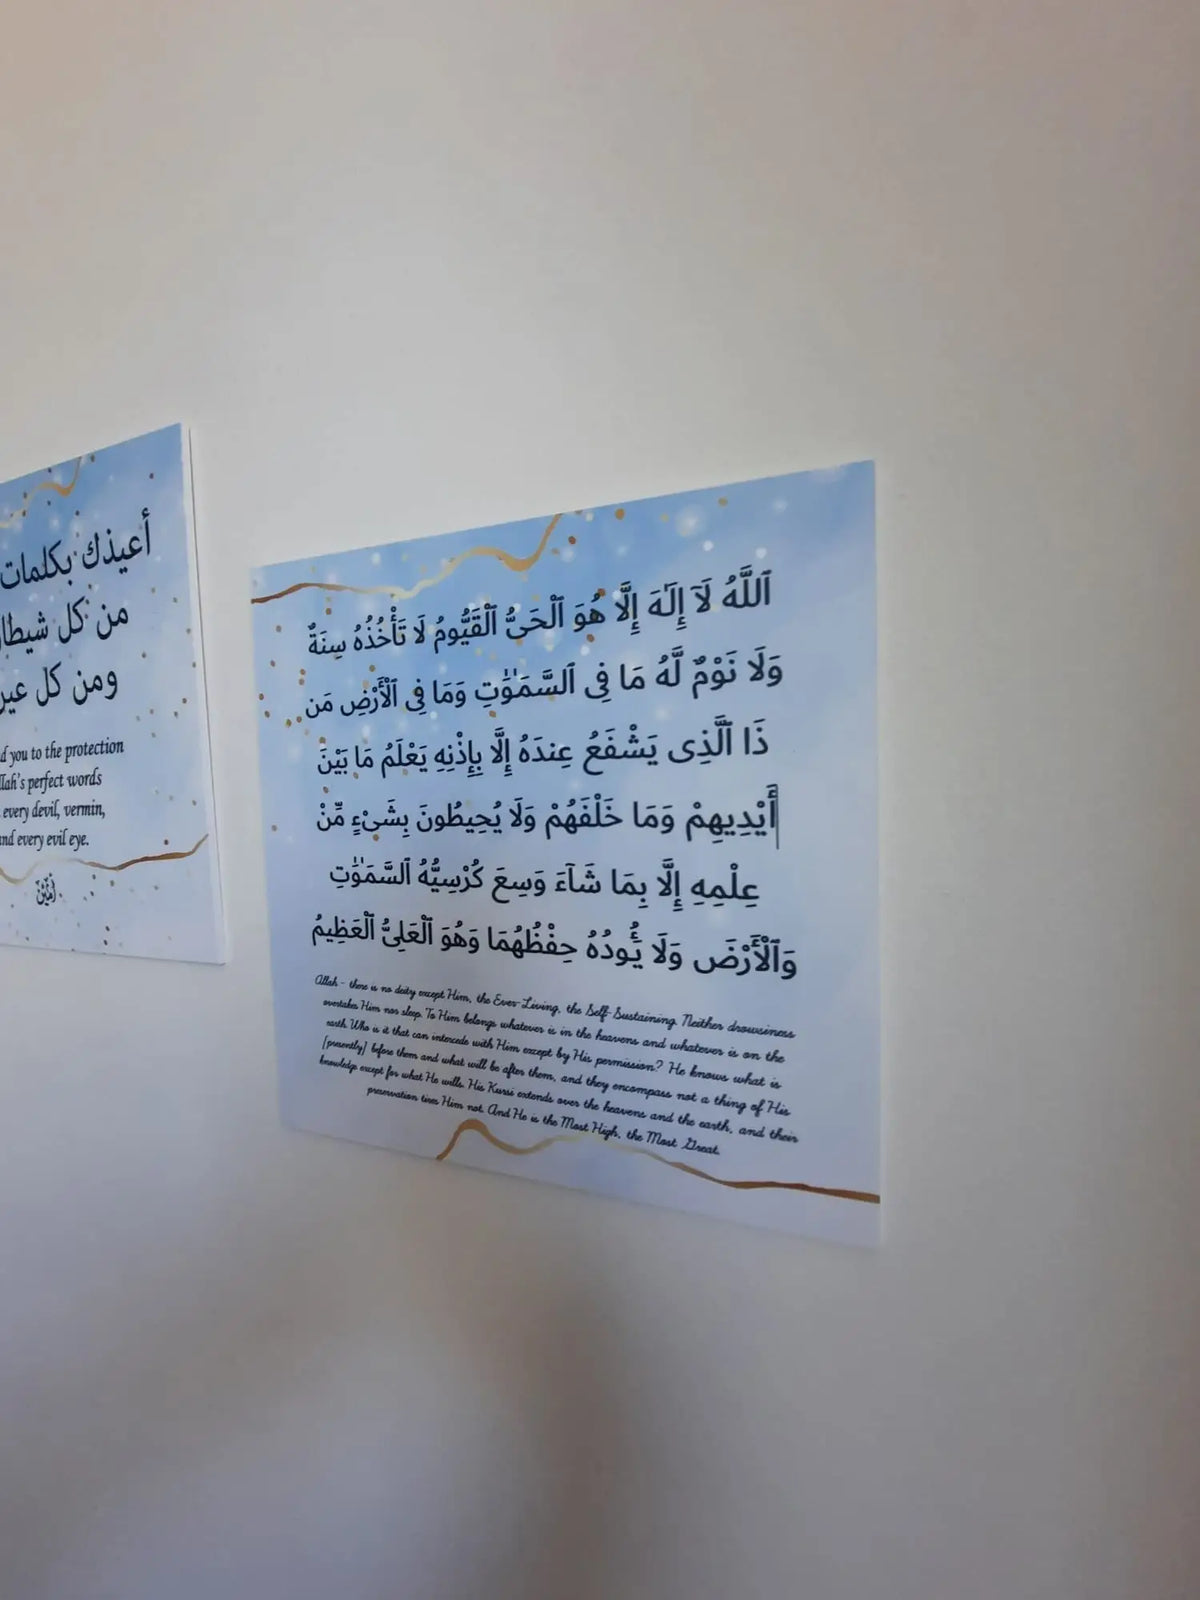 أعيذك بكلمات
من كل شيطان
ومن كل عين
d you to the protection
llah's perfect words
every devil, vermin,
nd every evil eye.
ٱللَّهُ لَآ إِلَٰهَ إِلَّا هُوَ ٱلْحَىُّ ٱلْقَيُّومُ لَا تَأْخُذُهُ سِنَةٌ
وَلَا نَوْمٌ لَّهُ مَا فِى ٱلسَّمَٰوَٰتِ وَمَا فِى ٱلْأَرْضِ مَن
ذَا ٱلَّذِى يَشْفَعُ عِندَهُ إِلَّا بِإِذْنِهِ يَعْلَمُ مَا بَيْنَ
أَيْدِيهِمْ وَمَا خَلْفَهُمْ وَلَا يُحِيطُونَ بِشَىْءٍ مِّنْ
عِلْمِهِ إِلَّا بِمَا شَآءَ وَسِعَ كُرْسِيُّهُ ٱلسَّمَٰوَٰتِ
وَٱلْأَرْضَ وَلَا ئَُودُهُ حِفْظُهُمَا وَهُوَ ٱلْعَلِىُّ ٱلْعَظِيمُ
Allah - there is no deity except Him, the Ever-Living, the Self-Sustaining. Neither drowsiness
overtakes Him nor sleep. To Him belongs whatever is in the heavens and whatever is on the
earth. Who is it that can intercede with Him except by His permission? He knows what is
[presently] before them and what will be after them, and they encompass not a thing of His
knowledge except for what He wills. His Kursi extends over the heavens and the earth, and their
preservation tires Him not. And He is the Most High, the Most Great.